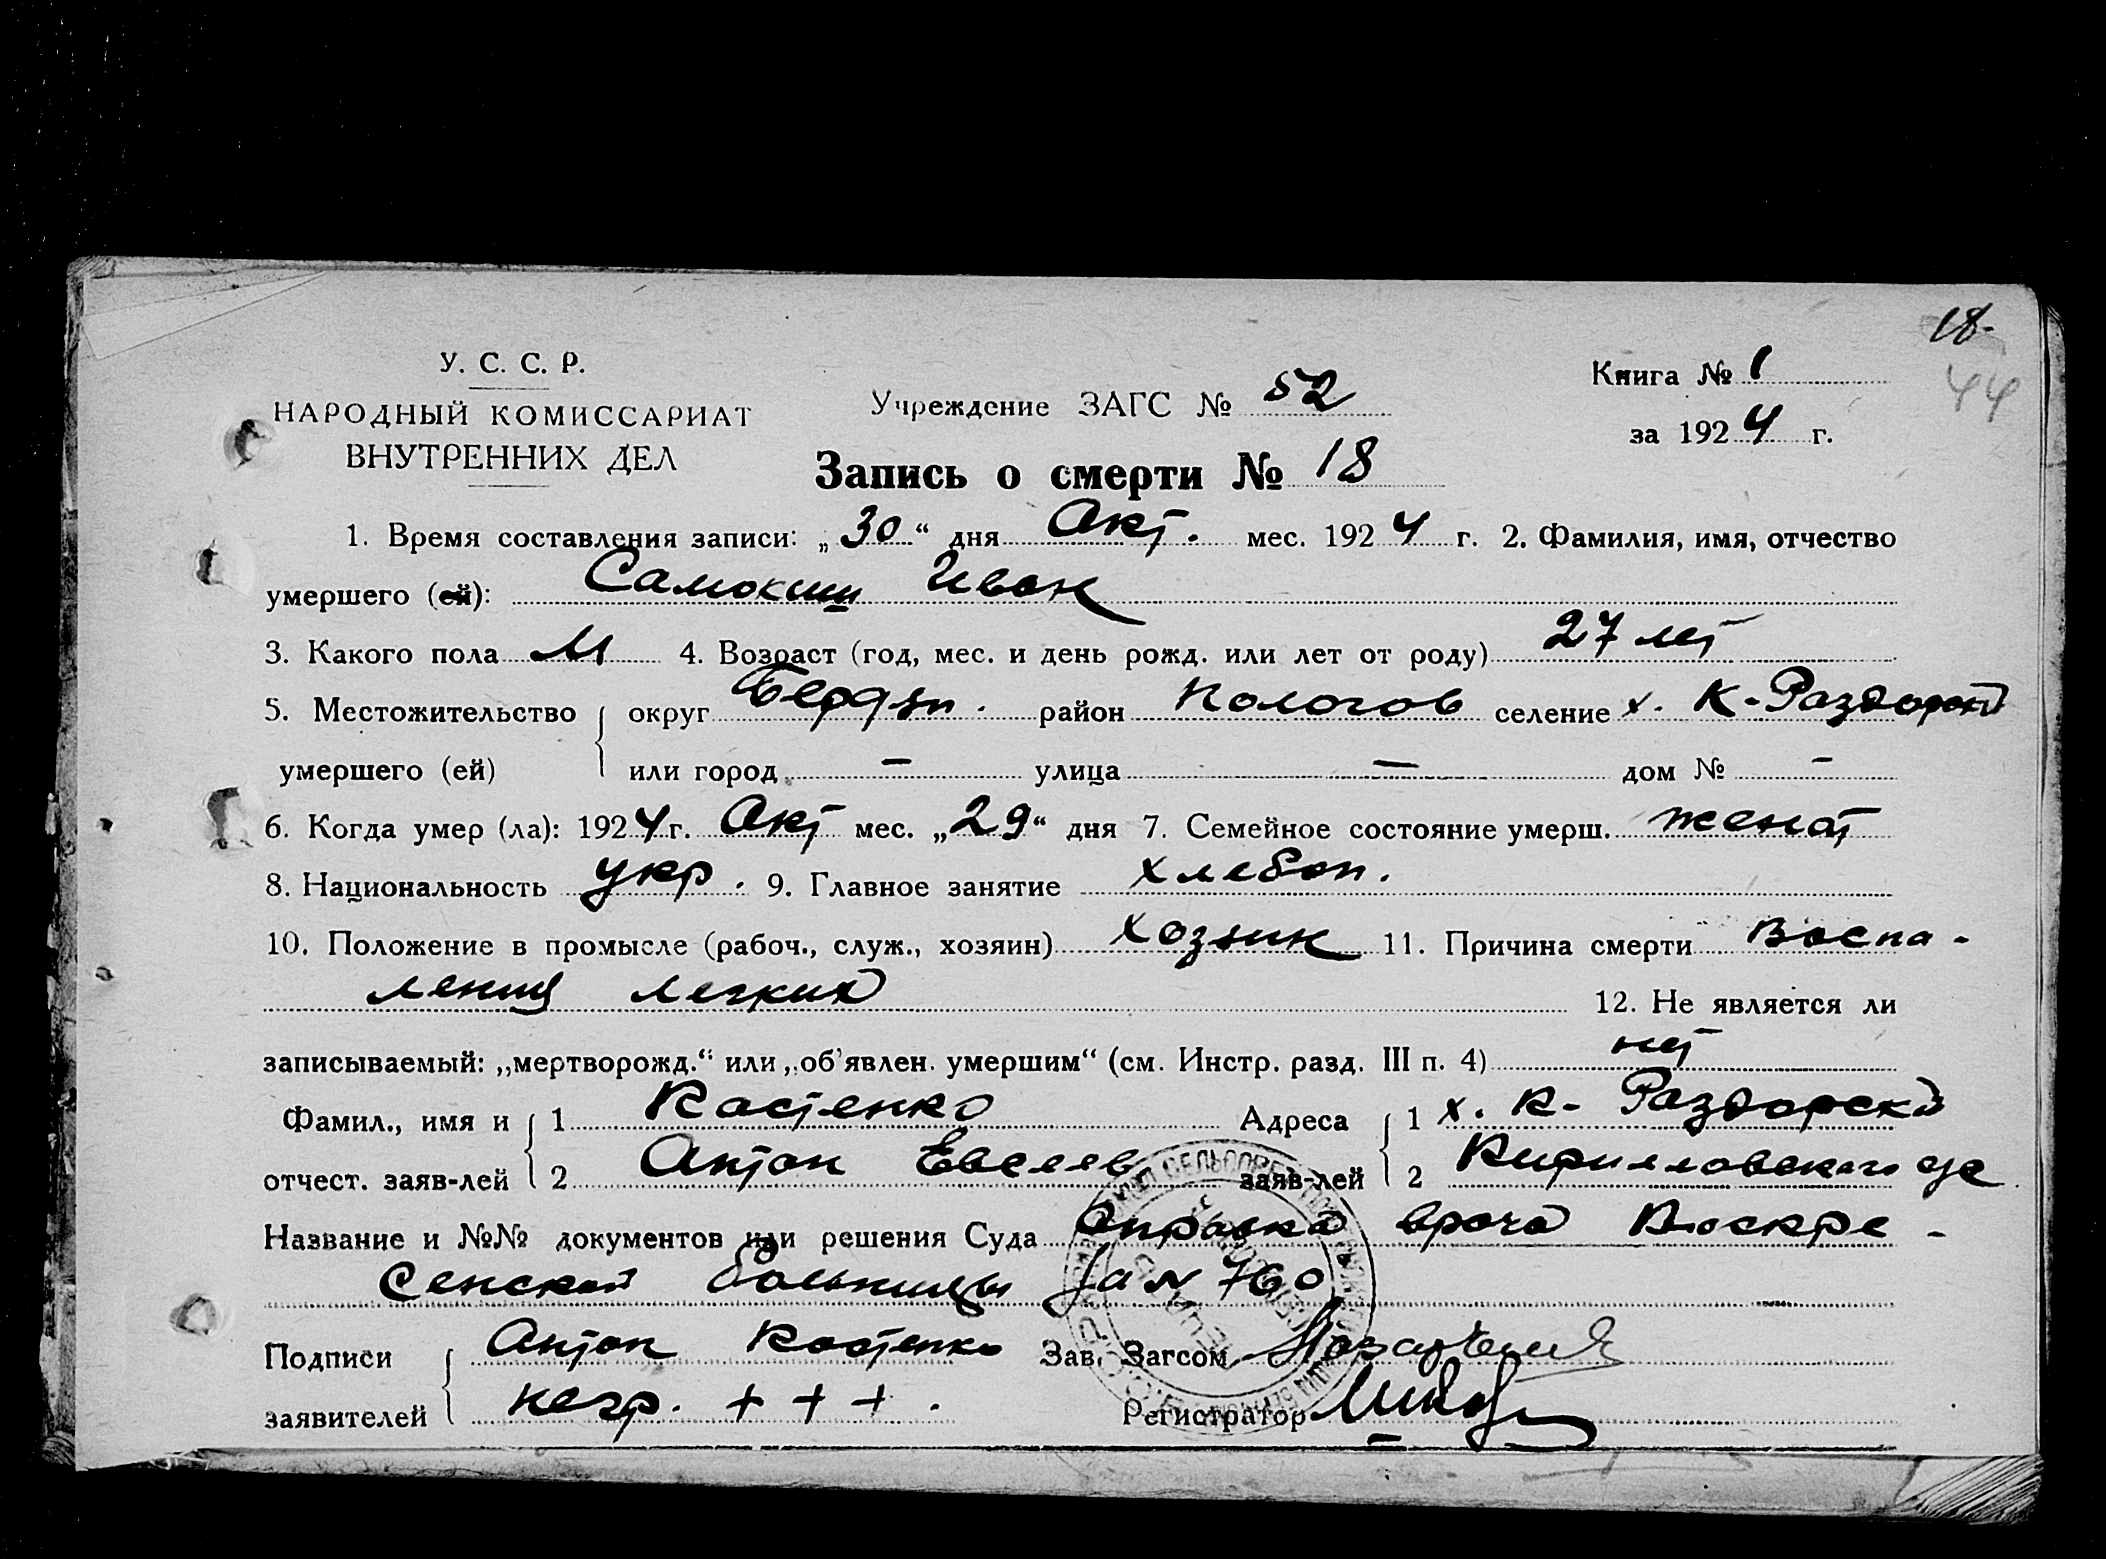 18-
44
У. С. С. Р.
НАРОДНЫЙ КОМИССАРИАТ
ВНУТРЕННИХ ДЕЛ
Учреждение ЗАГС № 52
Книга № 1
за 1924 г.
Запись о смерти № 18
1. Время составления записи: „30“ дня Окт. мес. 1924 г. 2. Фамилия, имя, отчество
умершего (ей): Самокиш Иван
3. Какого пола М 4. Возраст (год, мес. и день рожд. или лет от роду) 27 лет
5. Местожительство округ Бердян. район Пологов селение х. К-Раздорский
умершего (ей) или город — улица — дом № -
6. Когда умер (ла): 1924 г. Окт мес. „29“ дня 7. Семейное состояние умерш. женат
8. Национальность укр. 9. Главное занятие хлебоп.
10. Положение в промысле (рабоч., служ., хозяин) хозяин 11. Причина смерти Воспа-
ления легких 12. Не является ли
записываемый: „мертворожд.“ или „об'явлен. умершим“ (см. Инстр. разд. III п. 4) нет
Фамил., имя и 1 Костенко Адреса 1 х. К- Раздорский
отчест. заяв-лей 2 Антон Евсеев заяв-лей 2 Кирилловского с/с
Название и №№ документов или решения Суда Справка врача Воскре-
сенской больницы за N 760
Подписи Антон Костенко Зав. Загсом
заявителей негр. + + + . Регистратор